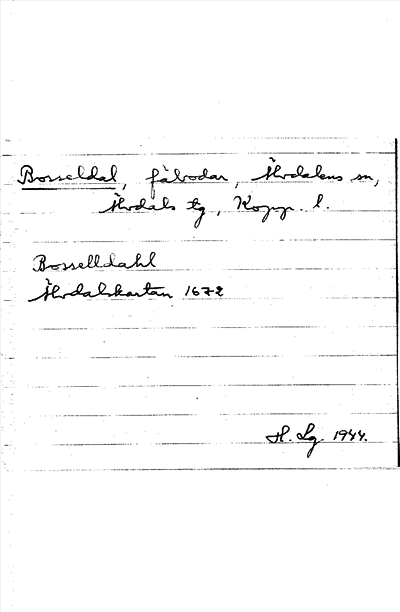 Bosseldal, fäbodar, Älvdalens sn,
Älvdals tg, Kopp. l.
Bosselldahl
Älvdalskartan 1672
H. Lg. 1944.